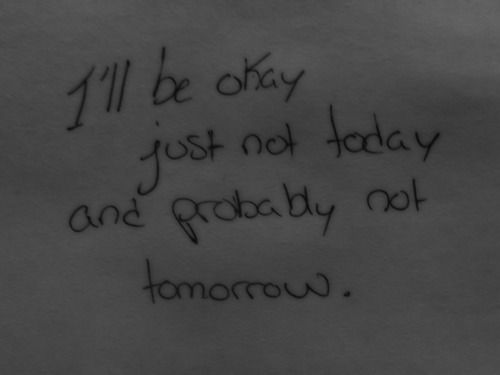 I'll be okay
just not today
and probably not
tomorrow.